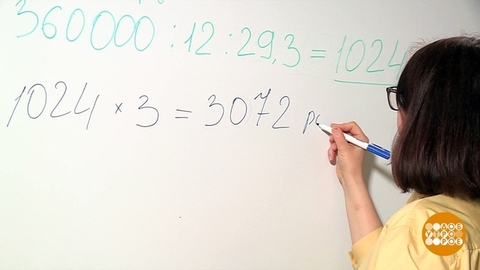 360000 : 12 : 29,3 = 1024
1024 × 3 = 3072 р
ДОБ
РОЕ
УТРО